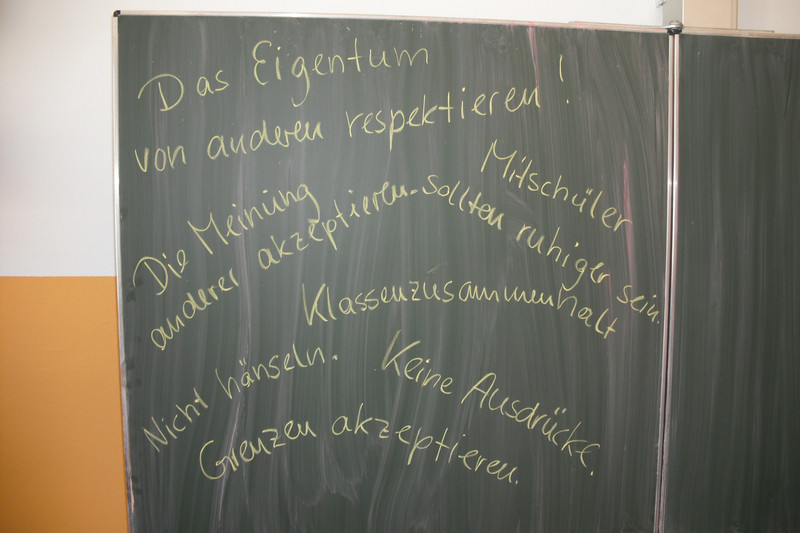 Das Eigentum
von anderen respektieren!
Die Meinung
anderer akzeptieren.
Mitschüler
sollten ruhiger sein.
Klassenzusammenhalt
Nicht hänseln.
Keine Ausdrücke.
Grenzen akzeptieren.